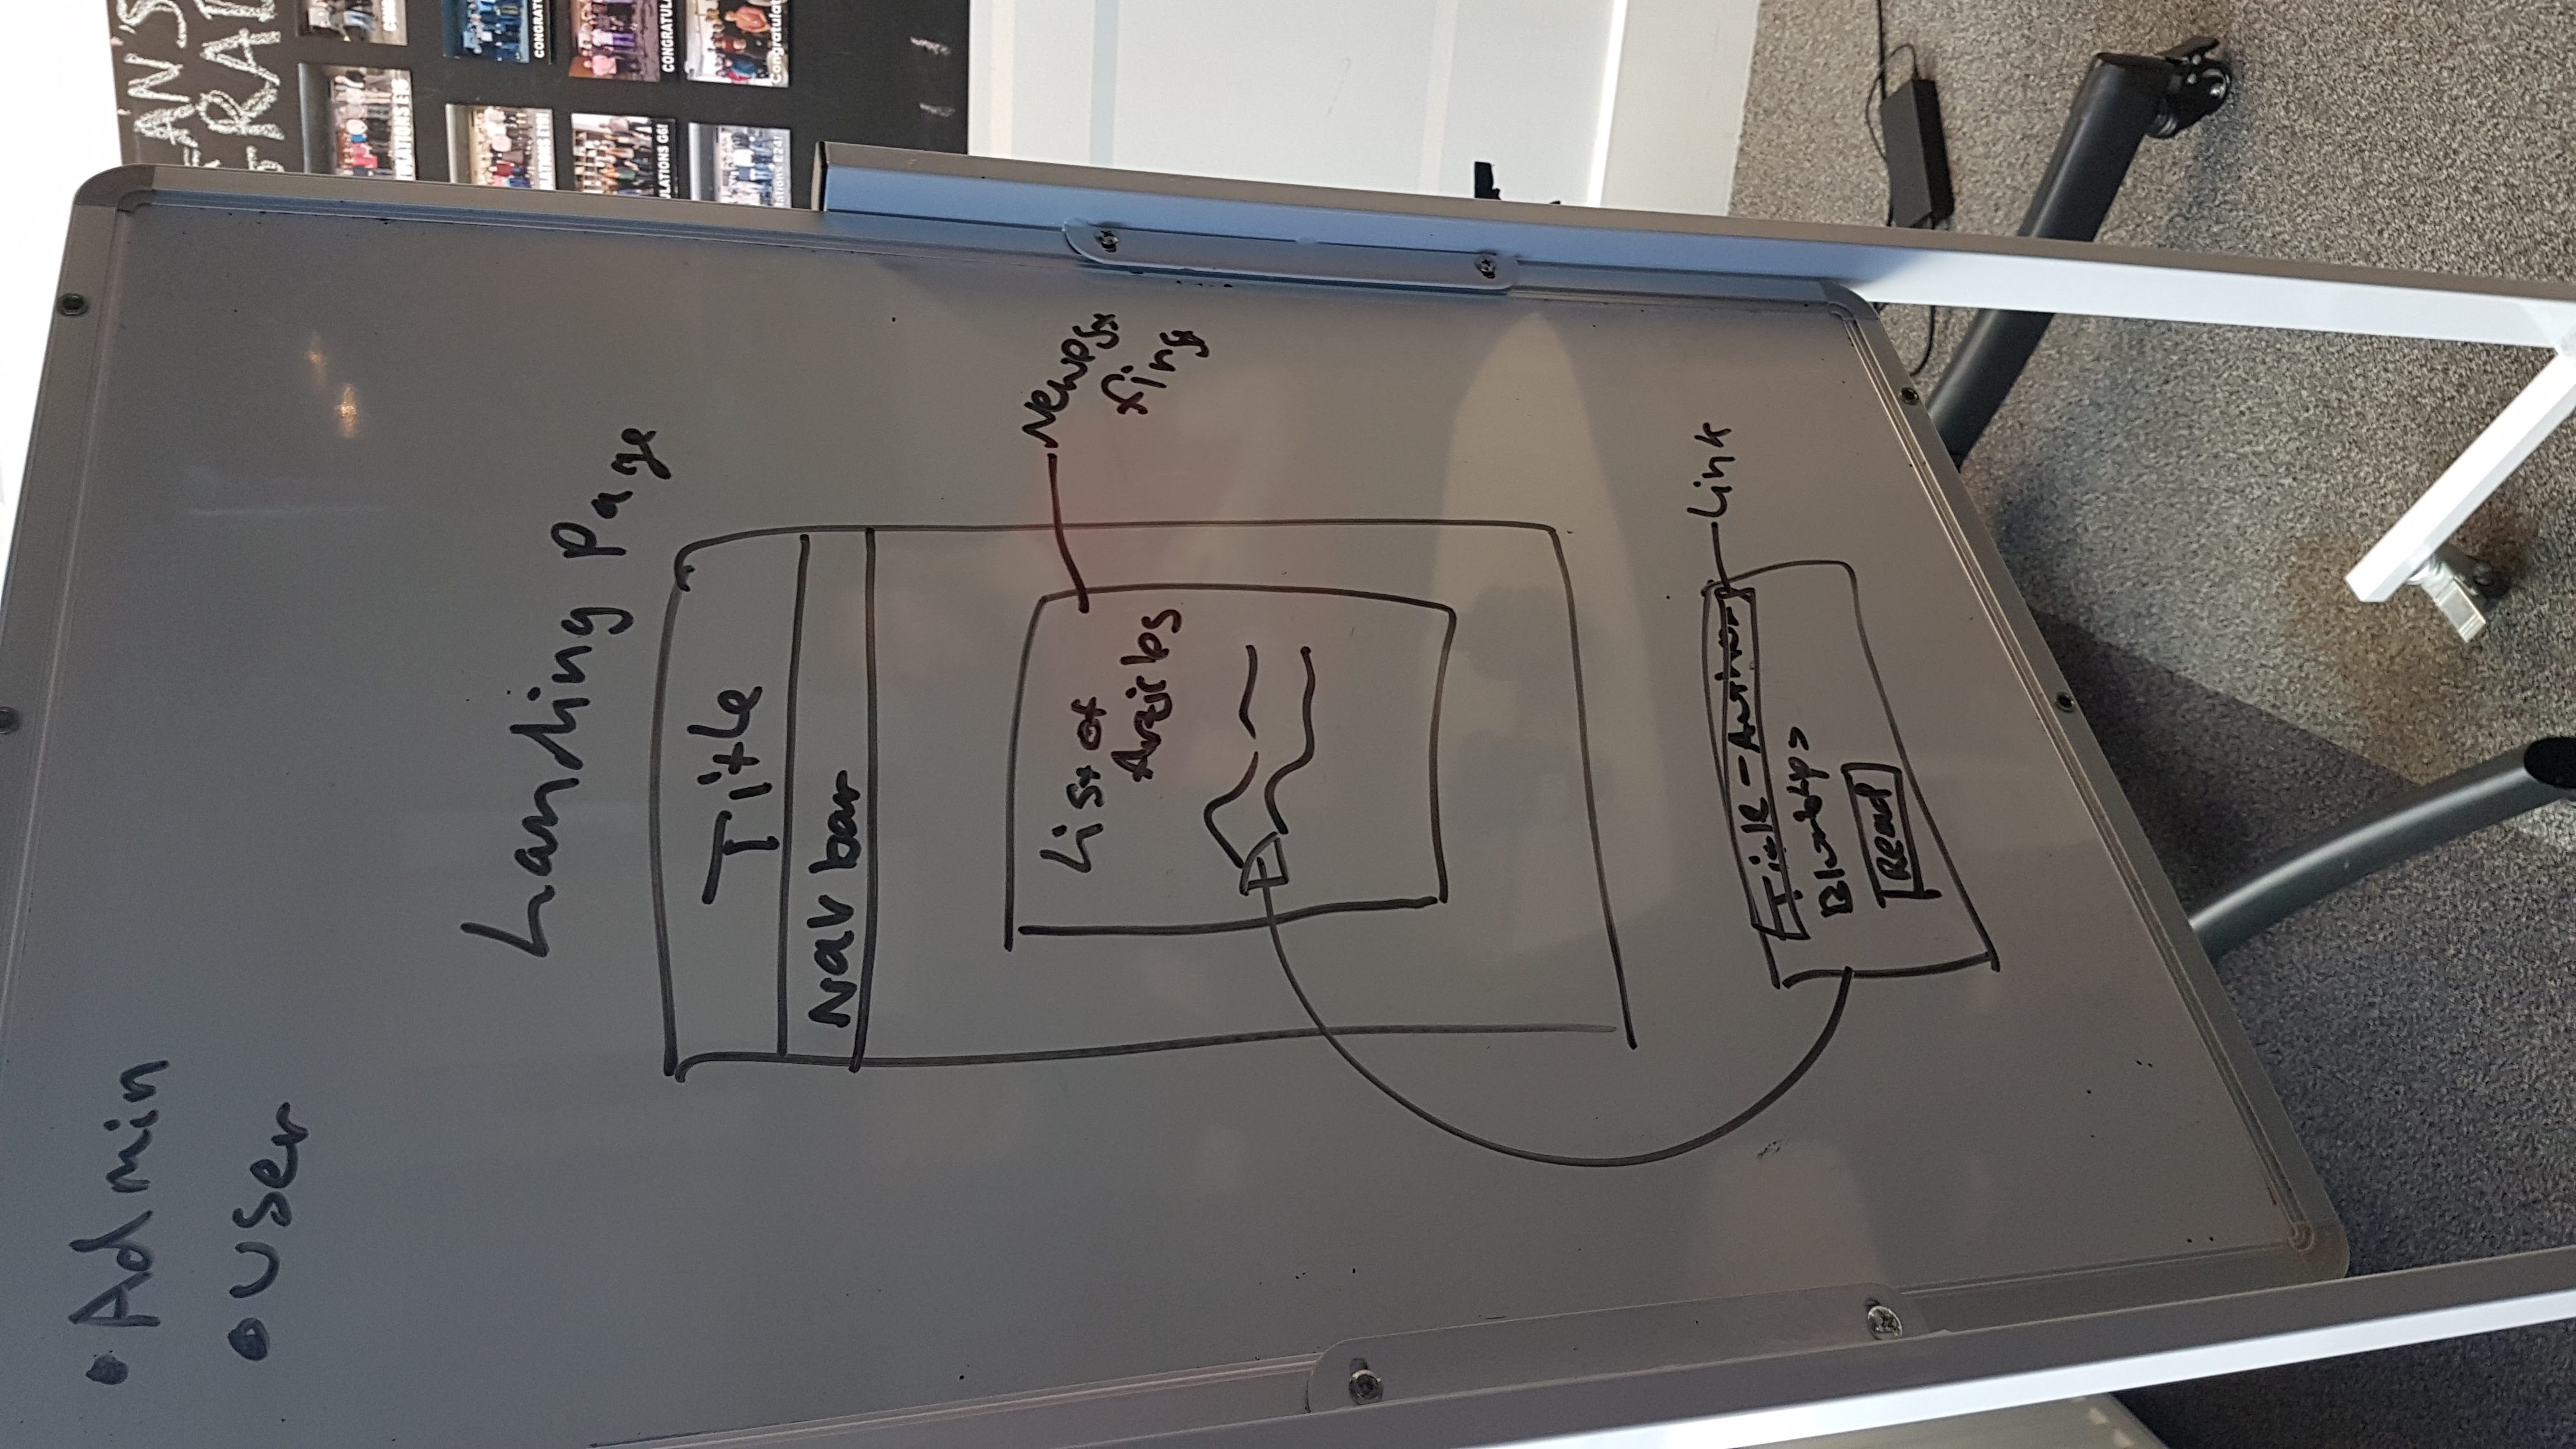 •Admin
•User
Landing Page
Title
Nav bar
List of
Articles
Newest
Title - Author
Link
Read
LAN'S
GRAD
ULATIONS E16
ULATIONS E19!
CONGRAT
ULATIONS G6!
CONGRATUL
lations E24!
Congratulat